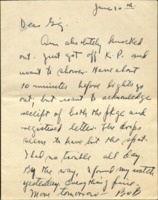 June 10th
Dear Gig,
Am absolutely knocked
out. Just got off K.P. and
want to shower. Have about
10 minutes before lights go
out, but want to acknowledge
receipt of both the pkge and
registered letter. The drops
seem to have hit the spot.
I had no trouble all day
By the way, I found my watch
yesterday. Everything fine.
More tomorrow - Bob